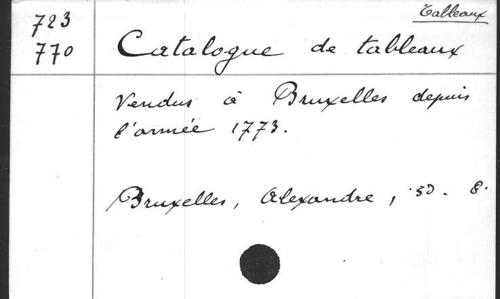 Tableaux
723
770
Catalogue de tableaux
Vendus à Bruxelles depuis
l'année 1773.
Bruxelles, Alexandre, . 8.